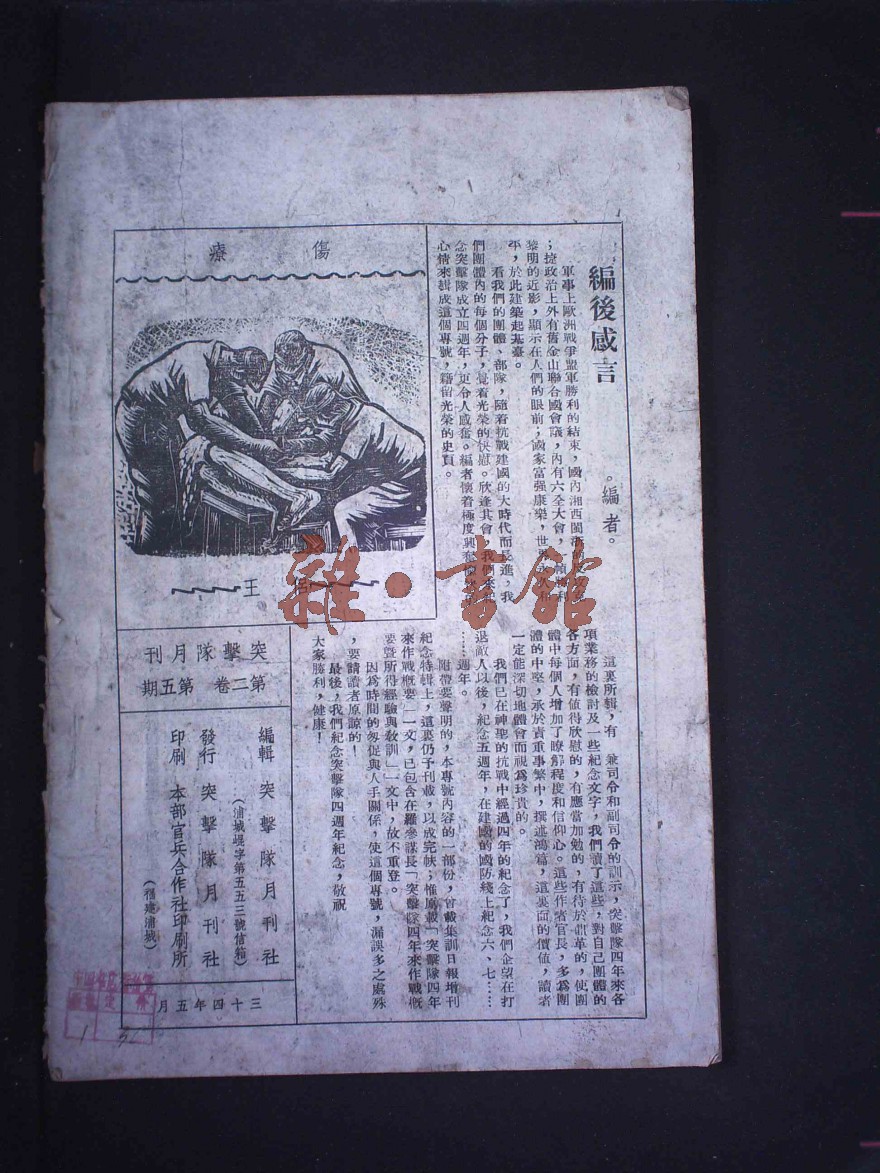 編後感言
。編者。
軍事上歐洲戰爭盟軍勝利的結束，國內湘西閩浙的
；按政治上外有舊金山聯合國會議，內有六全大會，
黎明的近影，顯示在人們的眼前；國家富强康樂，世界
平，於此建築起基臺。
看我們的團體、部隊，隨着抗戰建國的大時代而長進，我
們團體內的每個分子，覺着光榮的快慰。欣逢其會，我們
念突擊隊成立四週年，更令人感奮。編者懷着極度興奮
心情來輯成這個專號，藉留光榮的史頁。
這裏所輯，有　兼司令和副司令的訓示，突擊隊四年來各
項業務的檢討及一些紀念文字，我們讀了這些，對自己團體的
各方面，有值得欣慰的，有應當加勉的，有待於肅革的，使團
體中每個人增加了瞭解程度和信仰心。這些作者官長，多爲團
體的中堅，承於責重事繁中，撰述鴻篇，這裏面的價値，讀者
一定能深切地體會而視爲珍貴的。
我們已在神聖的抗戰中經過四年的紀念了，我們企望在打
退敵人以後，紀念五週年，在建國的國防綫上紀念六、七……
……週年。
附帶要聲明的，本專號內容的一部份，曾載集訓日報增刊
紀念特輯上，這裏仍予刊載，以成完帙；惟原載「突擊隊四年
來作戰概要」一文，已包含在羅參謀長「突擊隊四年來作戰概
要暨所得經驗與敎訓」一文中，故不重登。
因爲時間的匆促與人手關係，使這個專號，漏誤多之處殊
，要請讀者原諒的！
最後，我們紀念突擊隊四週年紀念，敬祝
大家勝利，健康！
傷　療
王
突擊隊月刊
第二卷　第五期
編輯　突擊隊月刊社
（浦城崐字第五五三號信箱）
發行　突擊隊月刊社
印刷　本部官兵合作社印刷所
（福建浦城）
三十四年五月
雜·書館